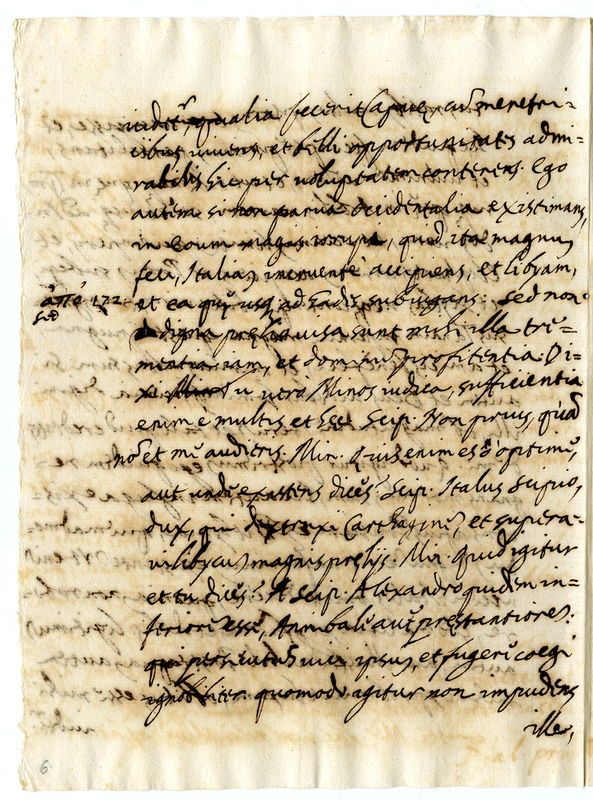 uidet, qualia fecerit Capue, cū meretri=
cibus uiuens, et belli opportunitates admi=
rabilis hic per uoluptatem conterens. Ego
autem si non parua occidentalia existimans,
in eoum magis irrupi, quid ita magnū
feci, Italiā incruente accipiens, et libyam,
et ea quę usq; ad Gades subiugans: sed non
sed
digna prelio uisa sunt mihi illa tre=
mentia iam, et dominū profitentia. Di=
xi tu uero Minos iudica, sufficientia
enim e multis et hec. Scip. Non prius, quā
nō et me audieris. Min. Quis enim es ò optime,
aut unde existens dices? Scip. Italus Scipio,
dux, qui destruxi Carthaginē, et supera=
ui libycos magnis prelijs. Min. quid igitur
et tu dices? Scip. Alexandro quidem in=
feriorē esse, Annibali aūt prestantiorē:
qui persecutus uici ipsum, et fugere coegi
ignobiliter. quomodo igitur non impudens
ille,
6